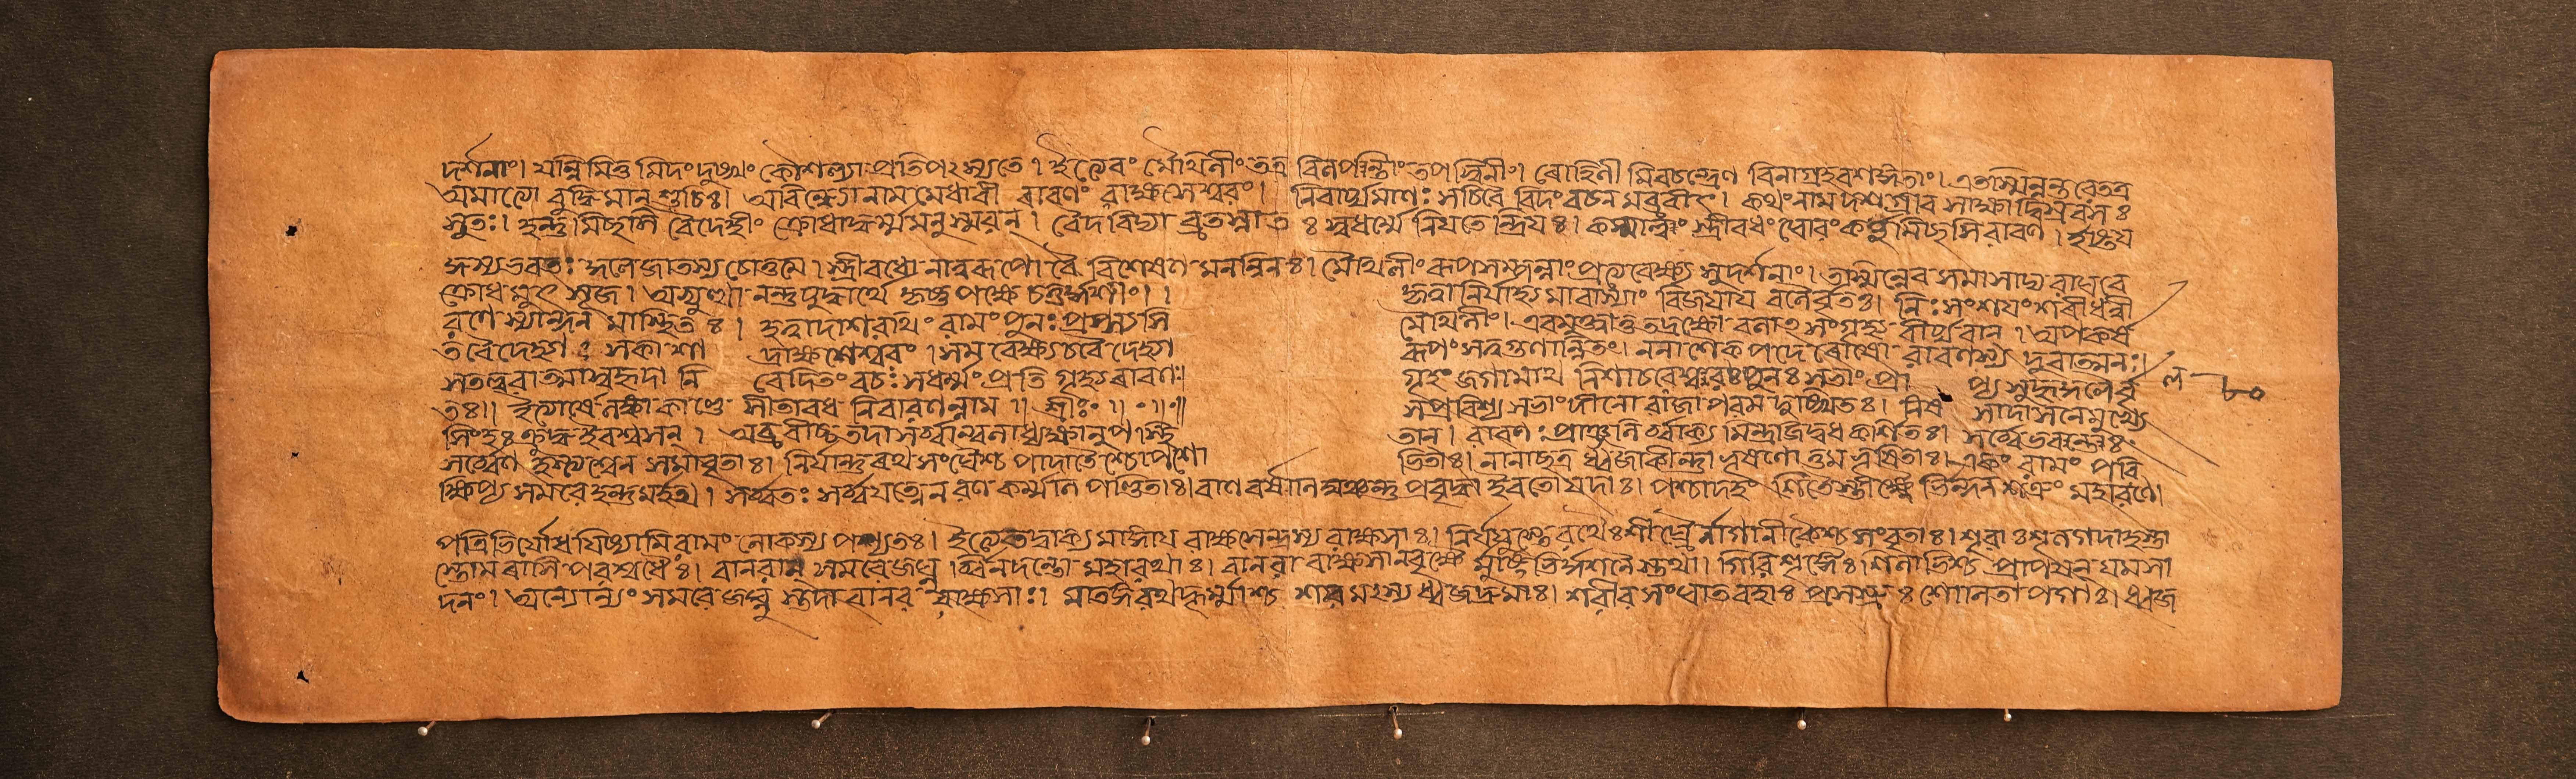 দর্শনাং। যন্নিমিত্ত মিদং দুঃখং কৌশল্যা প্রতিপৎস্যতে। ইত্যেবং মৈথিলীং তত্র বিলপন্তিং তপস্বিনীং। ৰোহিণী মিবচন্দ্রেণ বিনাগ্রহবশঙ্গতাং। এতস্মিন্নন্ত ৰেতত্র
অমাত্যো বুদ্ধিমান্ শুচিঃ। অবিন্ধ্যোনাম মেধাবী ৰাবণং ৰাক্ষসেশ্বৰং। নিবাৰ্য্যমাণঃ সচিবৈ ৰিদং বচন মব্রবীৎ। কথংনাম দশগ্রীব সাক্ষাদ্বিশ্রবস ঃ
সুতঃ। হন্তু মিচ্ছসি বৈদেহীং ক্রোধাদ্ধর্ম্মমনুস্মৰন্। বেদ বিদ্যা ব্রতস্নাত ঃ স্বধর্ম্মে নিযতেন্দ্রিযঃ। কস্মাত্ত্বং স্ত্রীবধং ঘোৰং কর্ত্তু মিচ্ছসি ৰাবণ।
স্ত্রীবধ্যে বিশেষেণ মনস্বিনঃ। মৈথিলীং ৰূপসম্পন্নাং প্রত্যবেক্ষ্য সুদর্শনাং। তস্মিন্নেব সমাসাদ্য ৰাঘবে
ক্রোধ মুৎ সৃজ। অভ্যুত্থা নন্তু যুদ্ধার্থে কৃষ্ণ পক্ষে চতুর্দ্দশীং। । কৃত্বা নির্যাহ্যমাবাস্যাং বিজযায বলৈর্বৃতঃ। নিঃসংশযং শৰীধন্বী
ৰণে স্যন্দন মাস্থিত ঃ। হত্বাদাশৰথিং ৰামং পুনঃ প্রপ্স্যসি মৈথিলীং। এবমুক্ত্বা ততদ্রক্ষো বলাৎ সংগৃহ্য বীৰ্য্যবান্। অপকর্ষ
ত বৈদেহ্যা ঃ সকা শা দ্রাক্ষসেশ্বৰং। সম বেক্ষ্য চবৈ দেহ্যা ৰূপং সৰ্ব্বগুণান্বিতং। ননাশৈক পদে ৰোষো ৰাবণস্য দুৰাত্মনঃ।
সতদ্দুৰাত্মাসুহৃদা নি বেদিতং বচঃ সধর্ম্মং প্রতি গৃহ্য ৰাবণঃ। গৃহং জগামাথ নিশাচৰেশ্বৰঃ পুনঃ সভাং প্রা প্য সুহৃদ্দলৈর্বৃ
তঃ॥ ইত্যার্ষে লঙ্কা কাণ্ডে সীতাবধ নিবাৰণন্নাম ॥ সপ্রবিশ্য সভাং দীনো ৰাজা পৰম দুঃখিতঃ। নিষ সাদাসনেমুখ্যে
সিংহঃ ক্রুদ্ধ ইবশ্বসন্। অব্রবীচ্চ তদা সৰ্ব্বান্বলাধ্যক্ষানুপ স্থি তান্। ৰাবণঃ প্রাঞ্জলি ৰ্ব্বাক্য মিন্দ্রজিদ্বধ কর্শিতঃ। সৰ্ব্বেভবন্তঃ
সৰ্ব্বেণ হস্ত্যশ্বেন সমাবৃতাঃ। নির্যান্তু ৰথ সংঘৈশ্চ পাদাতৈ শ্চোপশো ভিতাঃ। নানাছত্র ধ্বজাকীর্ণা ভূষণো ত্তম ভূষিতাঃ। একং ৰামং পৰি
ক্ষিপ্য সমৰে হন্তুমর্হত। সৰ্ব্বতঃ সৰ্ব্বযত্নেন ৰণ কর্ম্মণি পণ্ডিতাঃ। বাণ বর্ষাণি মুঞ্চন্তু প্রবৃদ্ধা ইবতোযদাঃ। পশ্চাদহং শিতৈস্তীক্ষ্ণৈ র্ভিন্দন্ শত্রুং মহাৰণে।
পত্রিভির্যোধযিষ্যামি ৰামং লোকস্য পশ্যতঃ। ইত্যেতদ্বাক্য মাদায ৰাক্ষসেন্দ্রস্য ৰাক্ষসাঃ। নির্যযুস্তে ৰথৈঃ শীঘ্রৈ র্নাগানীকৈশ্চ সংবৃতাঃ। শূৰাঃ শূলগদাহস্তা
স্তোমৰাসি পৰশ্বধৈঃ। বানৰান্ সমৰেজঘ্নু মহাৰথাঃ। বানৰা ৰাক্ষসান্বৃক্ষৈ র্মুষ্টিভির্দ্দশনৈস্তথা। গিৰি শৃঙ্গৈঃ শিলাভিশ্চ প্রাপযন্ যমসা
দনং। অন্যোন্যং সমৰে জঘ্নু স্তদা বানৰ ৰাক্ষসাঃ। মাতঙ্গৰথকূর্ম্মাশ্চ শৰ মৎস্য ধ্বজদ্রুমাঃ। শৰীৰ সংঘাতবহাঃ প্রসস্রুঃ শোণিতাপগাঃ। ধ্বজ